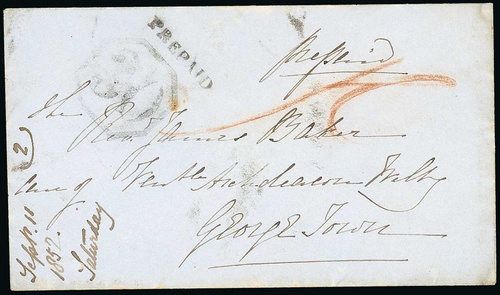 PREPAID
Prepaid
The
Rev. James Baker
care of Venble Archdeacon
GEORGE TOWN
2
Sept. 11
1852.
Saturday